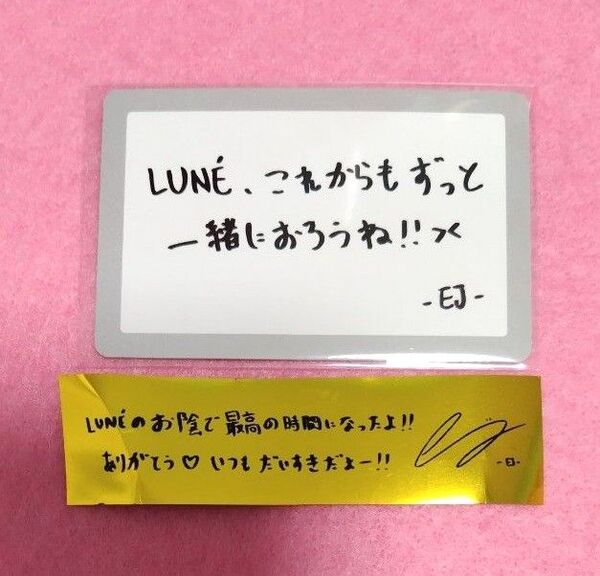 LUNÉ、これからもずっと
一緒におろうね!!
-EJ-
LUNÉのお陰で最高の時間になったよ!!
ありがとう♡ いつもだいすきだよー!!
-EJ-